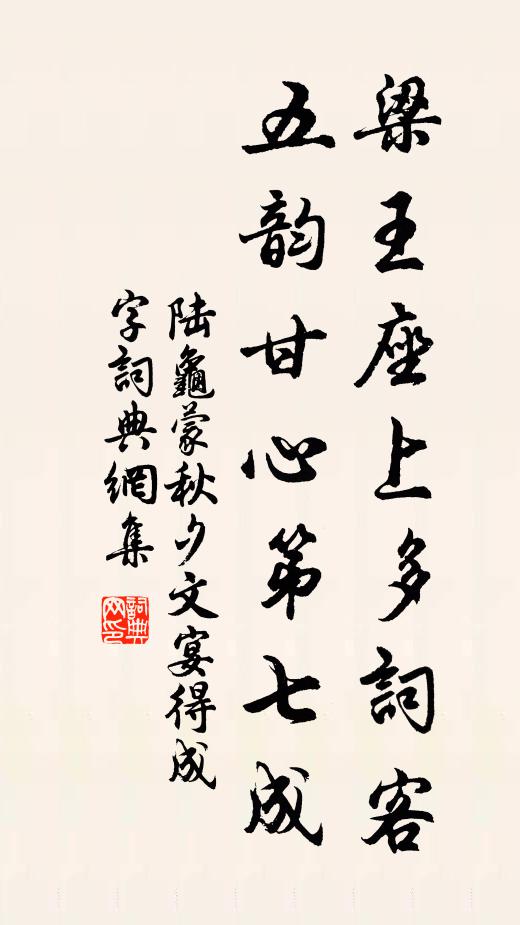 梁王座上多詞客
五韵甘心第七成
陸龜蒙秋夕文宴得成
字詞典網集
詞典
网印